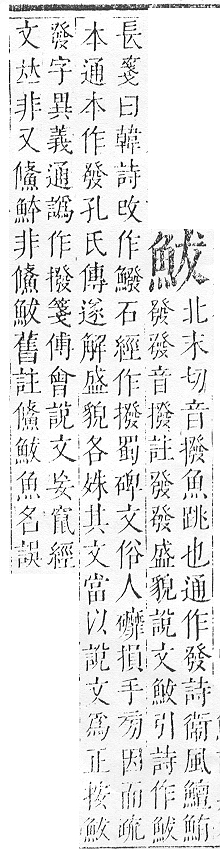 鮁
北末切音撥魚跳也通作發詩衞風鱣鮪
發發音撥註發發盛貌說文鮁引詩作鮁
長箋曰韓詩攺作鱍石經作撥蜀碑文俗人礳損手旁因而疏
本通本作發孔氏傳遂解盛貌各姝其文當以說文爲正按鮁
發字異義通譌作撥箋傅會說文妄竄經
文𠀤非又鯈鮬非鯈鮁舊註鯈鮁魚名誤